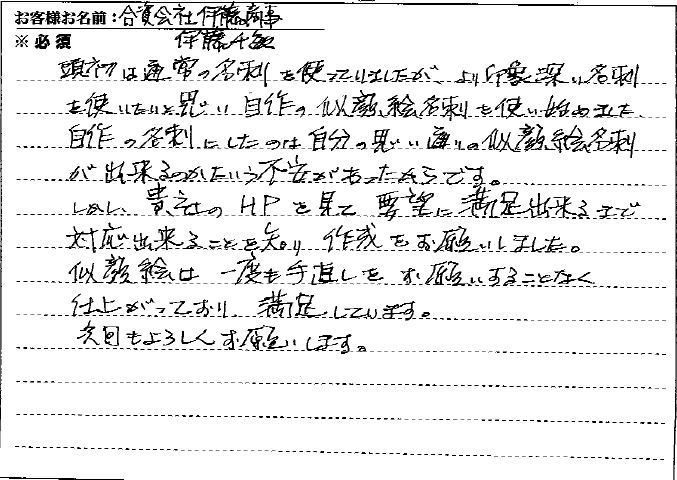 お客様お名前：合資会社伊藤商事
※必須 伊藤千敏
頭初は通常の名刺を使っていましたが、より印象深い名刺
を使いたいと思い自作の似顔絵名刺を使い始めました。
自作の名刺にしたのは自分の思い通りの似顔絵名刺
が出来るのかという不安があったからです。
しかし、貴社のHPを見て要望に満足出来るまで
対応出来ることを知り作成をお願いしました。
似顔絵は一度も手直しをお願いすることなく
仕上がっており、満足しています。
次回もよろしくお願いします。